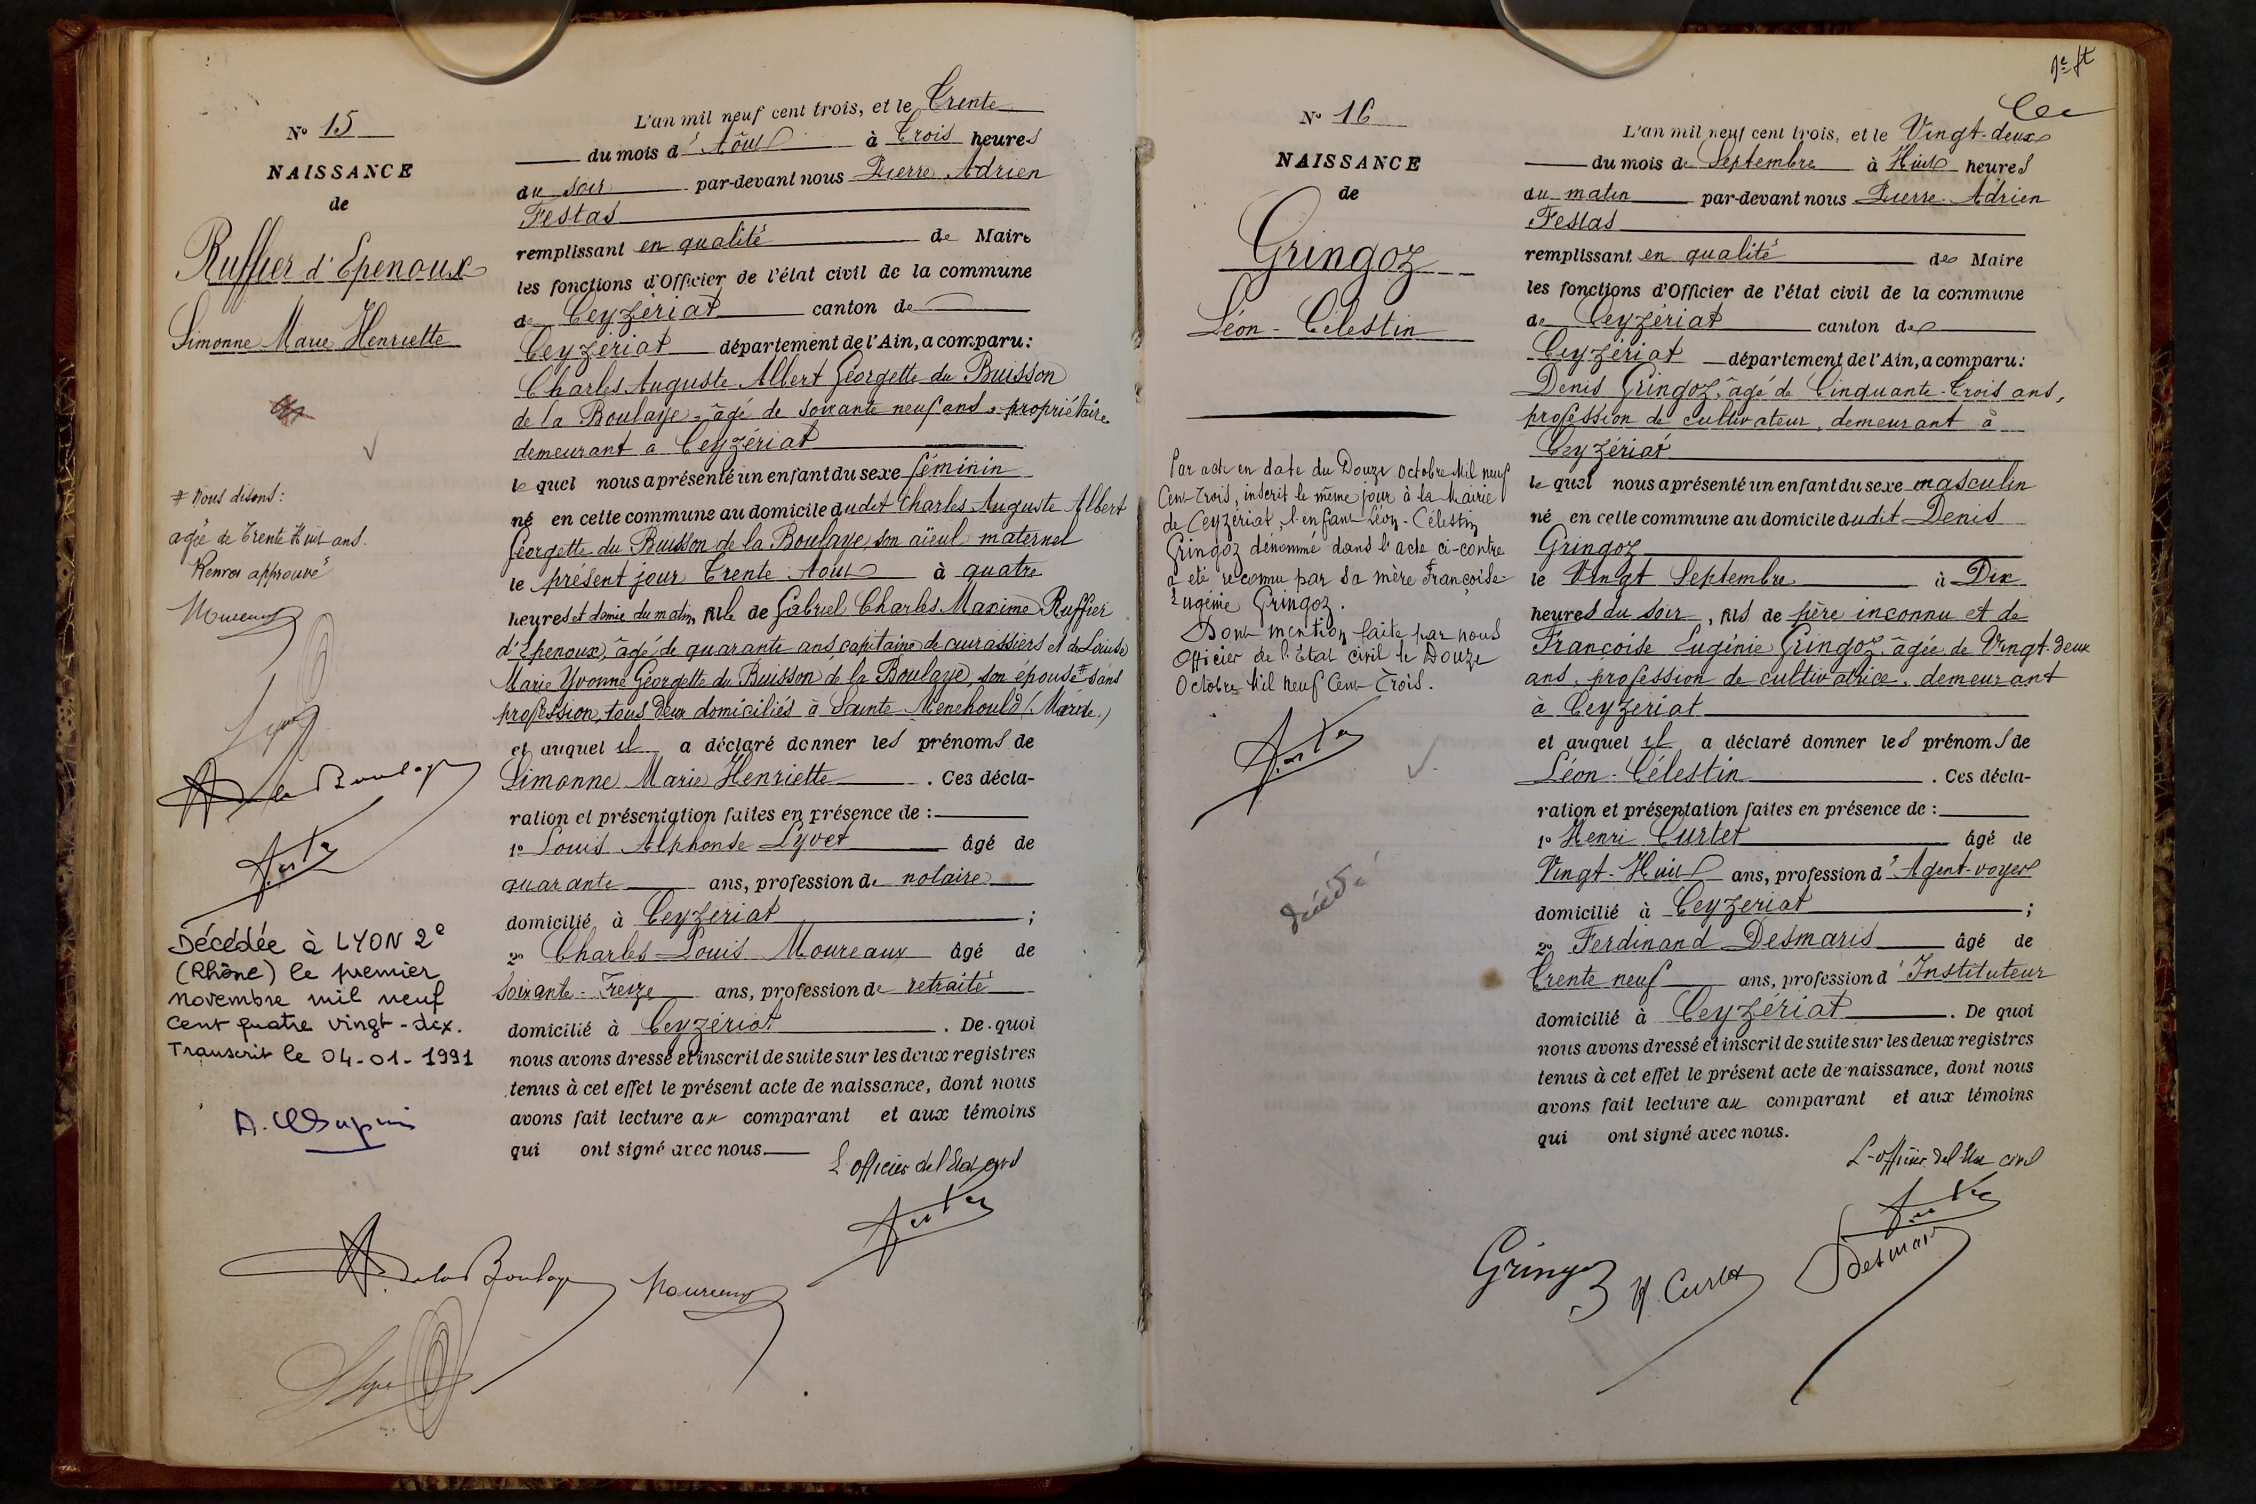 N° 15
NAISSANCE
de
Ruffier d'Epenoux
Simonne Marie Henriette
# Nous disons:
agée de Trente Huit ans.
Renvoi approuvé
Décédée à LYON 2e
(Rhône) le premier
novembre mil neuf
cent quatre vingt-dix.
Transcrit le 04-01-1991
L'an mil neuf cent trois, et le Trente
du mois d'Août à Trois heures
du soir par-devant nous Pierre Adrien
Festas
remplissant en qualité de Maire
les fonctions d'Officier de l'état civil de la commune
de Ceyzériat canton de
Ceyzériat département de l'Ain, a comparu:
Charles Auguste Albert Georgette du Buisson
de la Boulaye, âgé de soixante neuf ans, propriétaire
demeurant à Ceyzériat
lequel nous a présenté un enfant du sexe féminin
né en cette commune au domicile dudit Charles Auguste Albert
Georgette du Buisson de la Boulaye, son aïeul maternel
le présent jour Trente Août à quatre
heures et demie du matin, fille de Gabriel Charles Maxime Ruffier
d'Epenoux, âgé de quarante ans, capitaine de cuirassiers et de Louise
Marie Yvonne Georgette du Buisson de la Boulaye, son épouse # sans
profession, tous deux domiciliés à Sainte Menehould (Marne.)
et auquel il a déclaré donner les prénoms de
Simonne Marie Henriette. Ces décla-
ration et présentation faites en présence de:
1° Louis Alphonse Lyvet âgé de
quarante ans, profession de notaire
domicilié à Ceyzériat;
2° Charles Louis Moureaux âgé de
soixante-Treize ans, profession de retraité
domicilié à Ceyzériat. De quoi
nous avons dressé et inscrit de suite sur les deux registres
tenus à cet effet le présent acte de naissance, dont nous
avons fait lecture au comparant et aux témoins
qui ont signé avec nous.
L'officier de l'Etat civil
N° 16
NAISSANCE
de
Gringoz
Léon-Célestin
Par acte en date du Douze Octobre Mil neuf
Cent Trois, inscrit le même jour à la Mairie
de Ceyzériat, l'enfant Léon-Célestin
Gringoz dénommé dans l'acte ci-contre
a été reconnu par sa mère Françoise-
Eugénie Gringoz.
Dont mention faite par nous
Officier de l'Etat civil le Douze
Octobre Mil neuf Cent Trois.
décédé
L'an mil neuf cent trois, et le Vingt-deux
du mois de Septembre à Huit heures
du matin par-devant nous Pierre Adrien
Festas
remplissant en qualité de Maire
les fonctions d'Officier de l'état civil de la commune
de Ceyzériat canton de
Ceyzériat département de l'Ain, a comparu:
Denis Gringoz, âgé de Cinquante-Trois ans,
profession de cultivateur, demeurant à
Ceyzériat
lequel nous a présenté un enfant du sexe masculin
né en cette commune au domicile dudit Denis
Gringoz
le Vingt Septembre à Dix
heures du soir, fils de père inconnu et de
Françoise Eugénie Gringoz, âgée de Vingt-deux
ans, profession de cultivatrice, demeurant
à Ceyzériat
et auquel il a déclaré donner les prénoms de
Léon-Célestin. Ces décla-
ration et présentation faites en présence de:
1° Henri Curtet âgé de
Vingt-Huit ans, profession d'Agent-voyer
domicilié à Ceyzériat;
2° Ferdinand Desmaris âgé de
Trente neuf ans, profession d'Instituteur
domicilié à Ceyzériat. De quoi
nous avons dressé et inscrit de suite sur les deux registres
tenus à cet effet le présent acte de naissance, dont nous
avons fait lecture au comparant et aux témoins
qui ont signé avec nous.
L'officier de l'Etat civil
Gringoz
H. Curtet
Desmaris